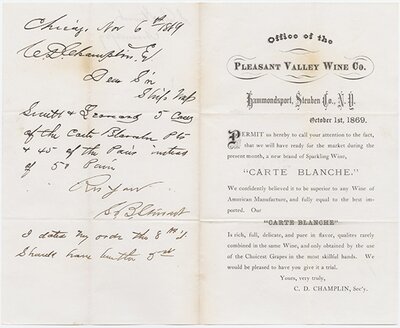 Chicago, Nov 6th 1869
C D Champlin, Esq
Dear Sir
Ship
& Leonard 5 Cases
of the Carte Blanche Pts
& 45 of the Pain instead
of 50 Pain
I dated my order the 8th I
have 5th
Office of the
PLEASANT VALLEY WINE CO.
Hammondsport, Steuben Co., N.Y.
October 1st, 1869.
PERMIT us hereby to call your attention to the fact,
that we will have ready for the market during the
present month, a new brand of Sparkling Wine,
"CARTE BLANCHE."
We confidently believed it to be superior to any Wine of
American Manufacture, and fully equal to the best im-
ported. Our
"CARTE BLANCHE"
Is rich, full, delicate, and pure in flavor, qualites rarely
combined in same Wine, and only obtained by the use
of the Choicest Grapes in the most skillful hands. We
would be pleased to have you give it a trial.
Yours, very truly,
C. D. CHAMPLIN, Sec'y.